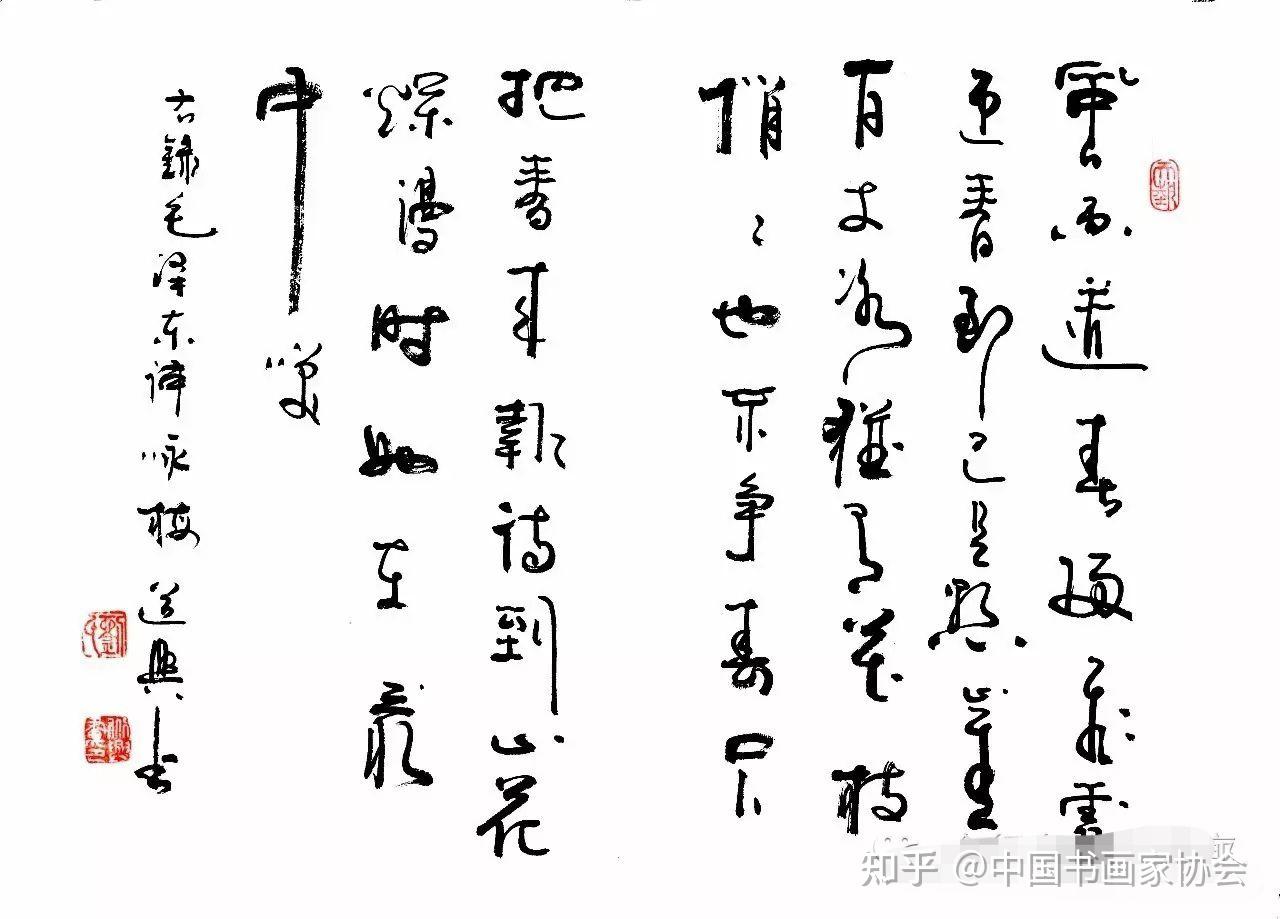 風雨送春歸飛雪
迎春到已是懸崖
百丈冰猶有花枝
俏〻也不争春只
把春来報待到山花
爛漫时她在叢
中笑
右錄毛泽东词咏梅 道興书
知乎 @中国书画家协会